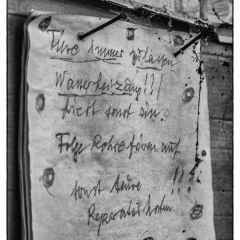 Türe immer zulassen
Wasserheizung!!!
friert sonst ein.
Folge Rohre frieren auf
sonst teure !!!
Reparaturkosten